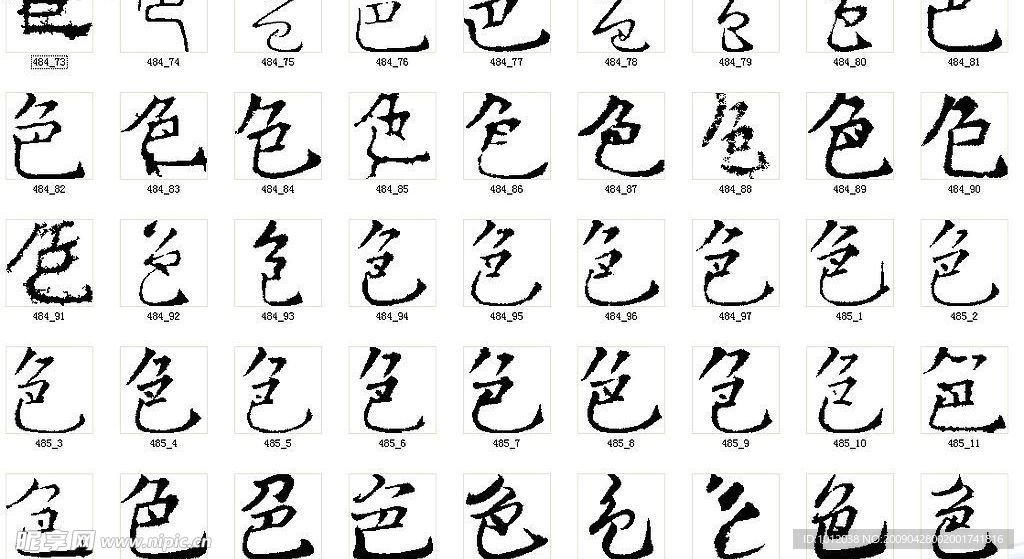 484_73 484_74 484_75 484_76 484_77 484_78 484_79 484_80 484_81
色 色 色 色 色 色 色 色 色
484_82 484_83 484_84 484_85 484_86 484_87 484_88 484_89 484_90
色 色 色 色 色 色 色 色 色
484_91 484_92 484_93 484_94 484_95 484_96 484_97 485_1 485_2
色 色 色 色 色 色 色 色 色
485_3 485_4 485_5 485_6 485_7 485_8 485_9 485_10 485_11
色 色 色 色 色 色 色 色 色
昵享网 www.nipic.cn
ID:1012038 NO:20090428002001741816